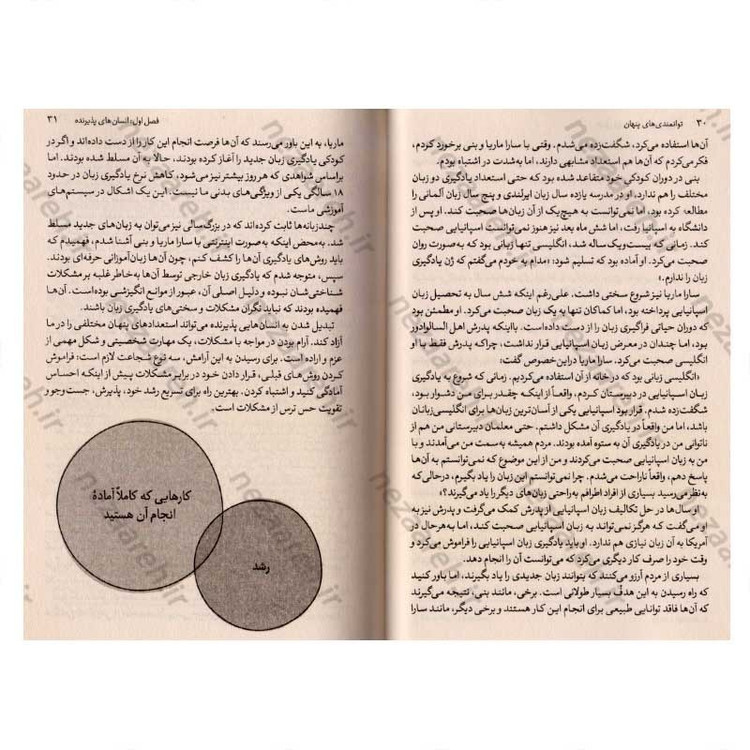 ۳۰ توانمندی‌های پنهان
آن‌ها استفاده می‌کرد، شگفت‌زده می‌شدم. وقتی با سارا ماریا و بنی برخورد کردم،
فکر می‌کردم که آن‌ها هم استعداد مشابهی دارند، اما به‌شدت در اشتباه بودم.
بنی در دوران کودکی خود متقاعد شده بود که حتی استعداد یادگیری دو زبان
مختلف را هم ندارد. او در مدرسه یازده سال زبان ایرلندی و پنج سال زبان آلمانی را
مطالعه کرده بود، اما نمی‌توانست به هیچ‌یک از آن زبان‌ها صحبت کند. او پس از
دانشگاه به اسپانیا رفت، اما شش ماه بعد نیز هنوز نمی‌توانست اسپانیایی صحبت
کند. زمانی که بیست‌ویک‌ساله شد، انگلیسی تنها زبانی بود که به‌صورت روان
صحبت می‌کرد. او آماده بود که تسلیم شود: «مدام به خودم می‌گفتم که ژن یادگیری
زبان را ندارم.»
سارا ماریا نیز شروع سختی داشت. علی‌رغم اینکه شش سال به تحصیل زبان
اسپانیایی پرداخته بود، اما کماکان تنها به یک زبان صحبت می‌کرد. او مطمئن بود
که دوران حیاتی فراگیری زبان را از دست داده است. بااینکه پدرش اهل السالوادور
بود، اما چندان در معرض زبان اسپانیایی قرار نداشت، چراکه پدرش فقط با او
انگلیسی صحبت می‌کرد. سارا ماریا دراین‌خصوص گفت:
«انگلیسی زبانی بود که در خانه از آن استفاده می‌کردیم. زمانی که شروع به یادگیری
زبان اسپانیایی در دبیرستان کردم، واقعاً ازاینکه چقدر برای من دشوار بود،
شگفت‌زده شدم. قرار بود اسپانیایی یکی از آسان‌ترین زبان‌ها برای انگلیسی‌زبانان
باشد، اما من واقعاً در یادگیری آن مشکل داشتم. حتی معلمان دبیرستانی من هم از
ناتوانی من در یادگیری آن به ستوه آمده بودند. مردم همیشه به‌سمت من می‌آمدند و با
من به زبان اسپانیایی صحبت می‌کردند و من از این موضوع که نمی‌توانستم به آن‌ها
پاسخ دهم، واقعاً ناراحت می‌شدم. چرا نمی‌توانستم این زبان را یاد بگیرم، درحالی‌که
به‌نظر می‌رسید بسیاری از افراد اطرافم به‌راحتی زبان‌های دیگر را یاد می‌گیرند؟»
او سال‌ها در حل تکالیف زبان اسپانیایی از پدرش کمک می‌گرفت و پدرش نیز به
او می‌گفت که هرگز نمی‌تواند به زبان اسپانیایی صحبت کند، اما به‌هرحال در
آمریکا به آن زبان نیازی هم ندارد. او باید یادگیری زبان اسپانیایی را فراموش می‌کرد و
وقت خود را صرف کار دیگری می‌کرد که می‌توانست آن را انجام دهد.
بسیاری از مردم آرزو می‌کنند که بتوانند زبان جدیدی را یاد بگیرند، اما باور کنید
که راه رسیدن به این هدف بسیار طولانی است. برخی، مانند بنی، نتیجه می‌گیرند
که آن‌ها فاقد توانایی طبیعی برای انجام این کار هستند و برخی دیگر، مانند سارا
فصل اول: انسان‌های پذیرنده ۳۱
ماریا، به این باور می‌رسند که آن‌ها فرصت انجام این کار را از دست داده‌اند و اگر در
کودکی یادگیری زبان جدید را آغاز کرده بودند، حالا به آن مسلط شده بودند. اما
براساس شواهدی که هر روز بیشتر نیز می‌شود، کاهش نرخ یادگیری زبان در حدود
۱۸ سالگی یکی از ویژگی‌های بدنی ما نیست. این یک اشکال در سیستم‌های
آموزشی ماست.
چندزبانه‌ها ثابت کرده‌اند که در بزرگ‌سالی نیز می‌توان به زبان‌های جدید مسلط
شد. به‌محض اینکه به‌صورت اینترنتی با سارا ماریا و بنی آشنا شدم، فهمیدم که
باید روش‌های یادگیری آن‌ها را کشف کنم، چون آن‌ها زبان‌آموزانی حرفه‌ای بودند.
سپس، متوجه شدم که یادگیری زبان خارجی توسط آن‌ها به‌خاطر غلبه بر مشکلات
شناختی‌شان نبوده و دلیل اصلی آن، عبور از موانع انگیزشی بوده است. آن‌ها
فهمیده بودند که نباید نگران مشکلات و سختی‌های یادگیری زبان باشند.
تبدیل شدن به انسان‌هایی پذیرنده می‌تواند استعدادهای پنهان مختلفی را در ما
آزاد کند. آرام بودن در مواجه با مشکلات، یک مهارت شخصیتی و شکل مهمی از
عزم و اراده است. برای رسیدن به این آرامش، سه نوع شجاعت لازم است: فراموش
کردن روش‌های قبلی، قرار دادن خود در برابر مشکلات پیش از اینکه احساس
آمادگی کنید و اشتباه کردن. بهترین راه برای تسریع رشد خود، پذیرش، جست‌وجو و
تقویت حس ترس از مشکلات است.
کارهایی که کاملاً آمادهٔ
انجام آن هستید
رشد
nezaareh.ir